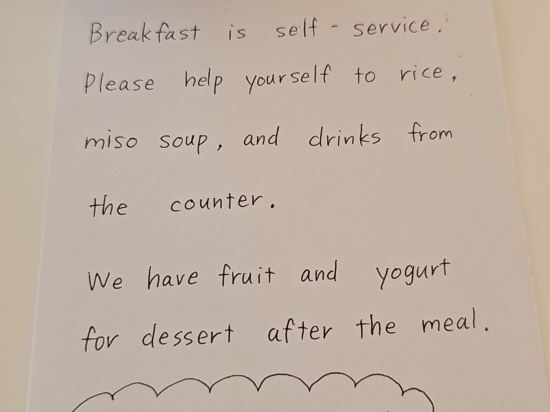 Breakfast is self-service.
Please help yourself to rice,
miso soup, and drinks from
the counter.
We have fruit and yogurt
for dessert after the meal.